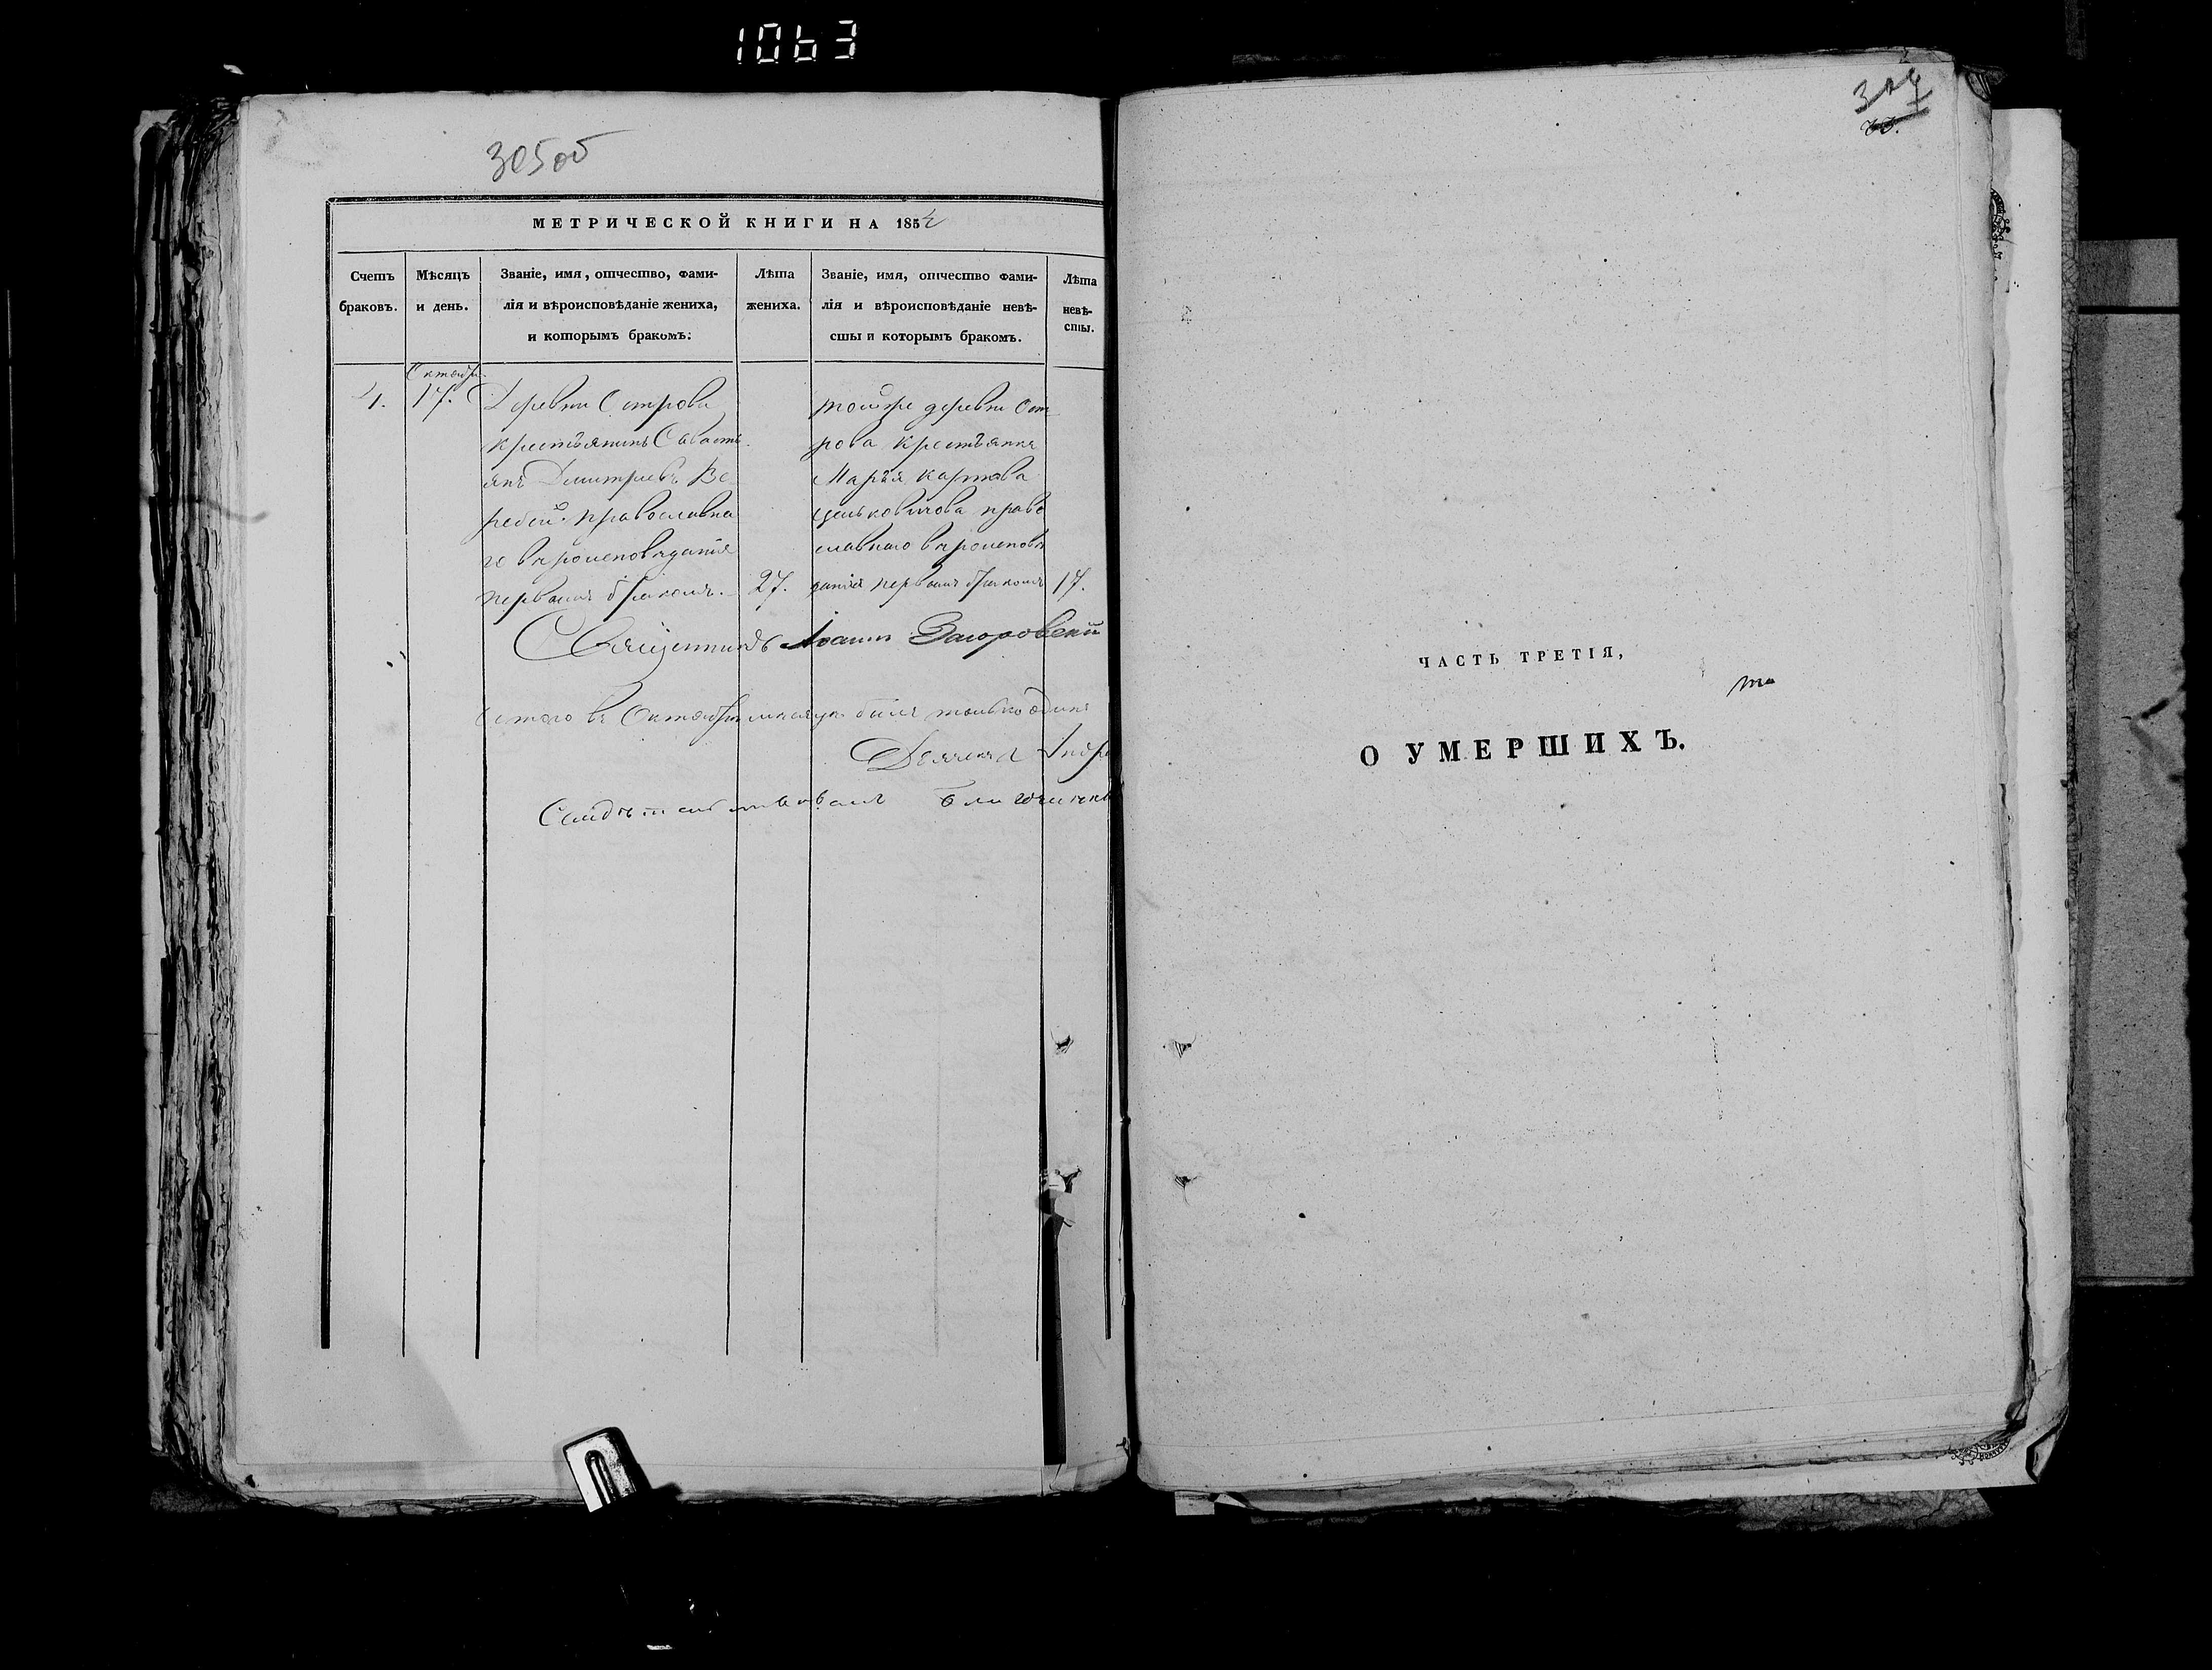 1063
305об
МЕТРИЧЕСКОЙ КНИГИ НА 1854
Счетъ браковъ.
Мѣсяцъ и день.
Званіе, имя, отчество, фами-
лія и вѣроисповѣданіе жениха,
и которымъ бракомъ.
Лѣта жениха.
Званіе, имя, отчество фами-
лія и вѣроисповѣданіе невѣ-
сты и которымъ бракомъ.
Лѣта невѣ-
сты.
Октября
4.
17.
Деревни Острова
крестьянинъ Савасті-
янъ Димитріевъ Во-
робей православна
го вѣроисповѣданія
первымъ бракомъ.
27.
тойже деревни Ост
рова крестьянка
Марья
православнаго вѣроисповѣ
данія первымъ бракомъ
17.
Священникъ Іоаннъ Загоровскій
Итого въ Октябрѣ мѣсяцѣ былъ только одинъ
Дьячекъ Андре
Свидѣтельствовалъ благочинны
ЧАСТЬ ТРЕТІЯ,
О УМЕРШИХЪ.